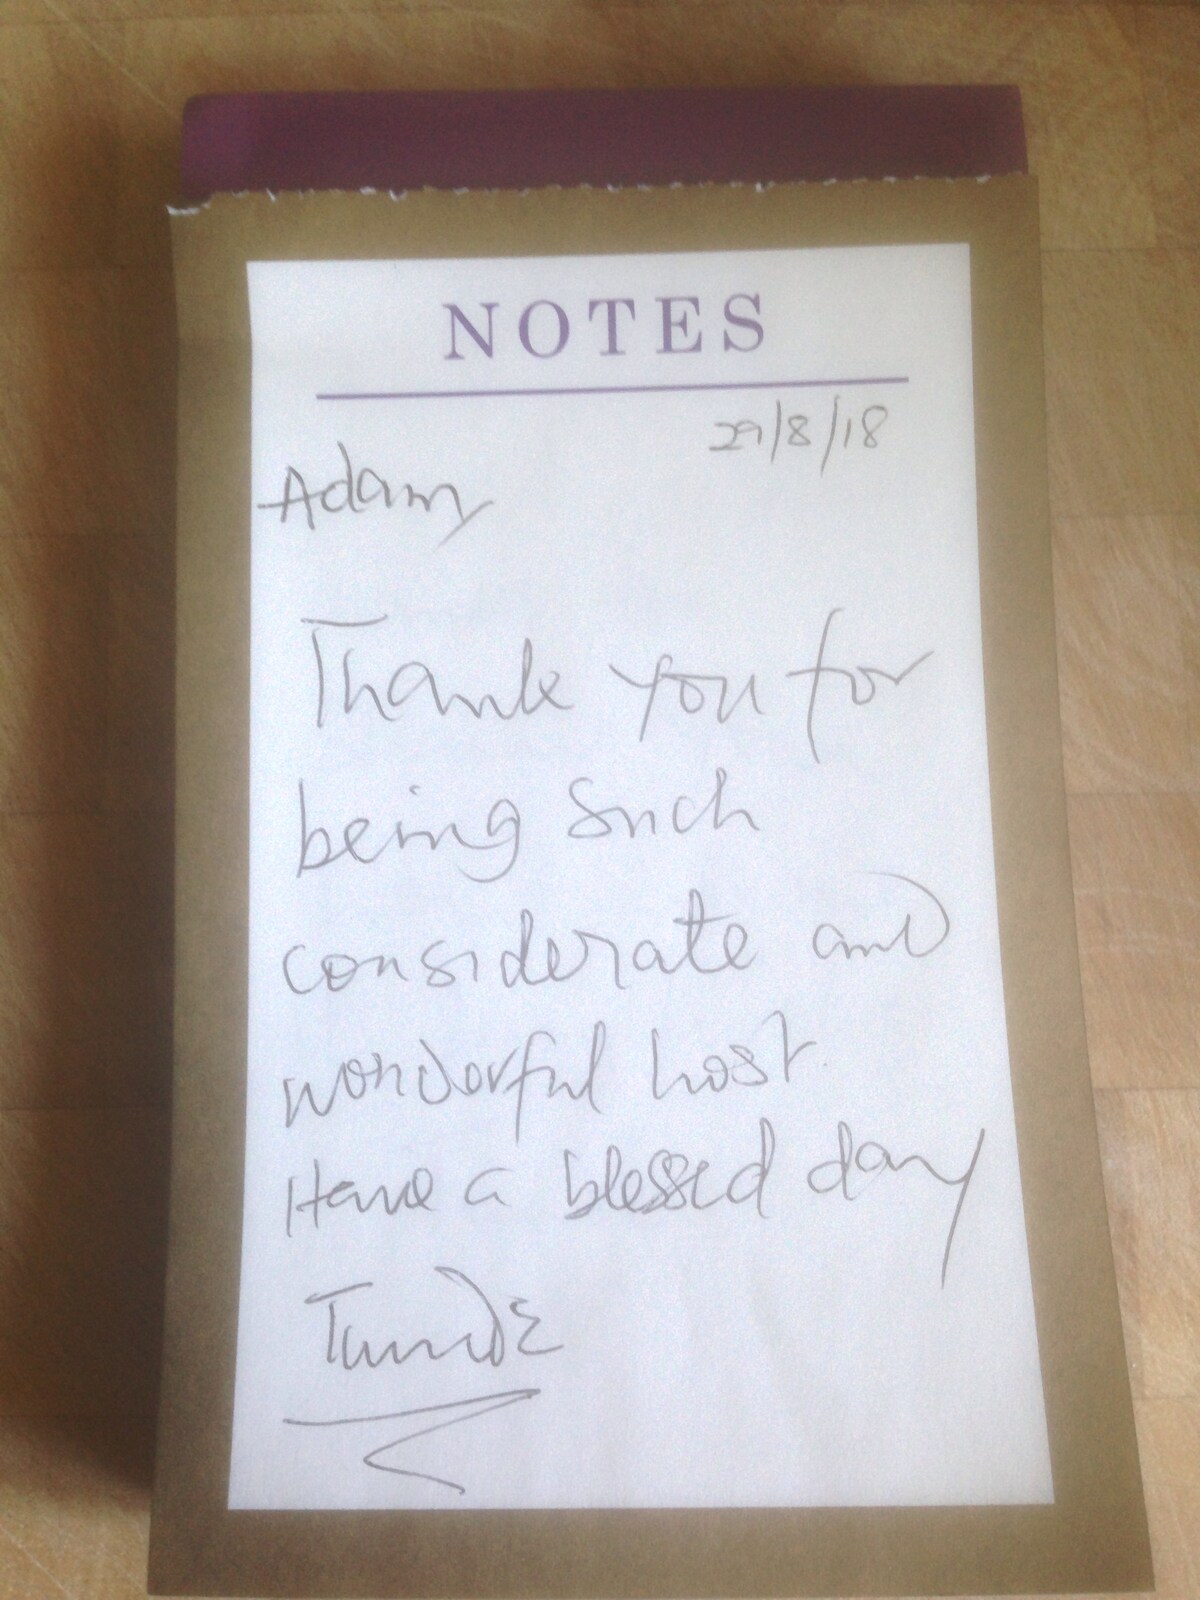 NOTES
29/8/18
Adam,
Thank you for
being such
considerate and
wonderful host.
Have a blessed day
Tunde